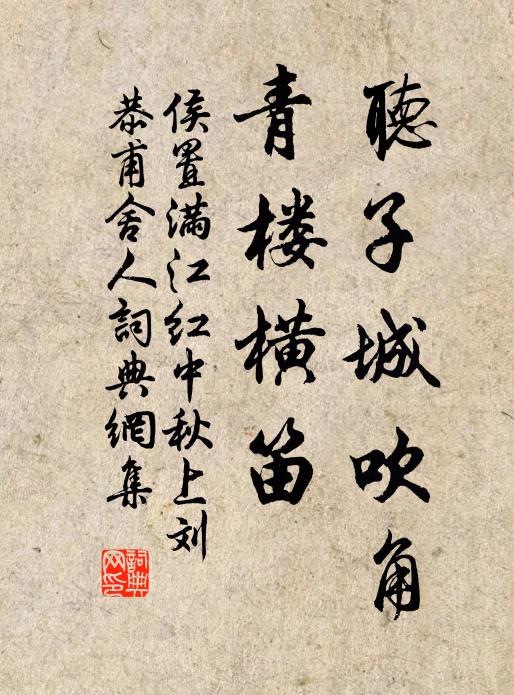 聽子城吹角
青楼横笛
侯置满江红中秋上刘
恭甫舍人詞典網集
詞典网印